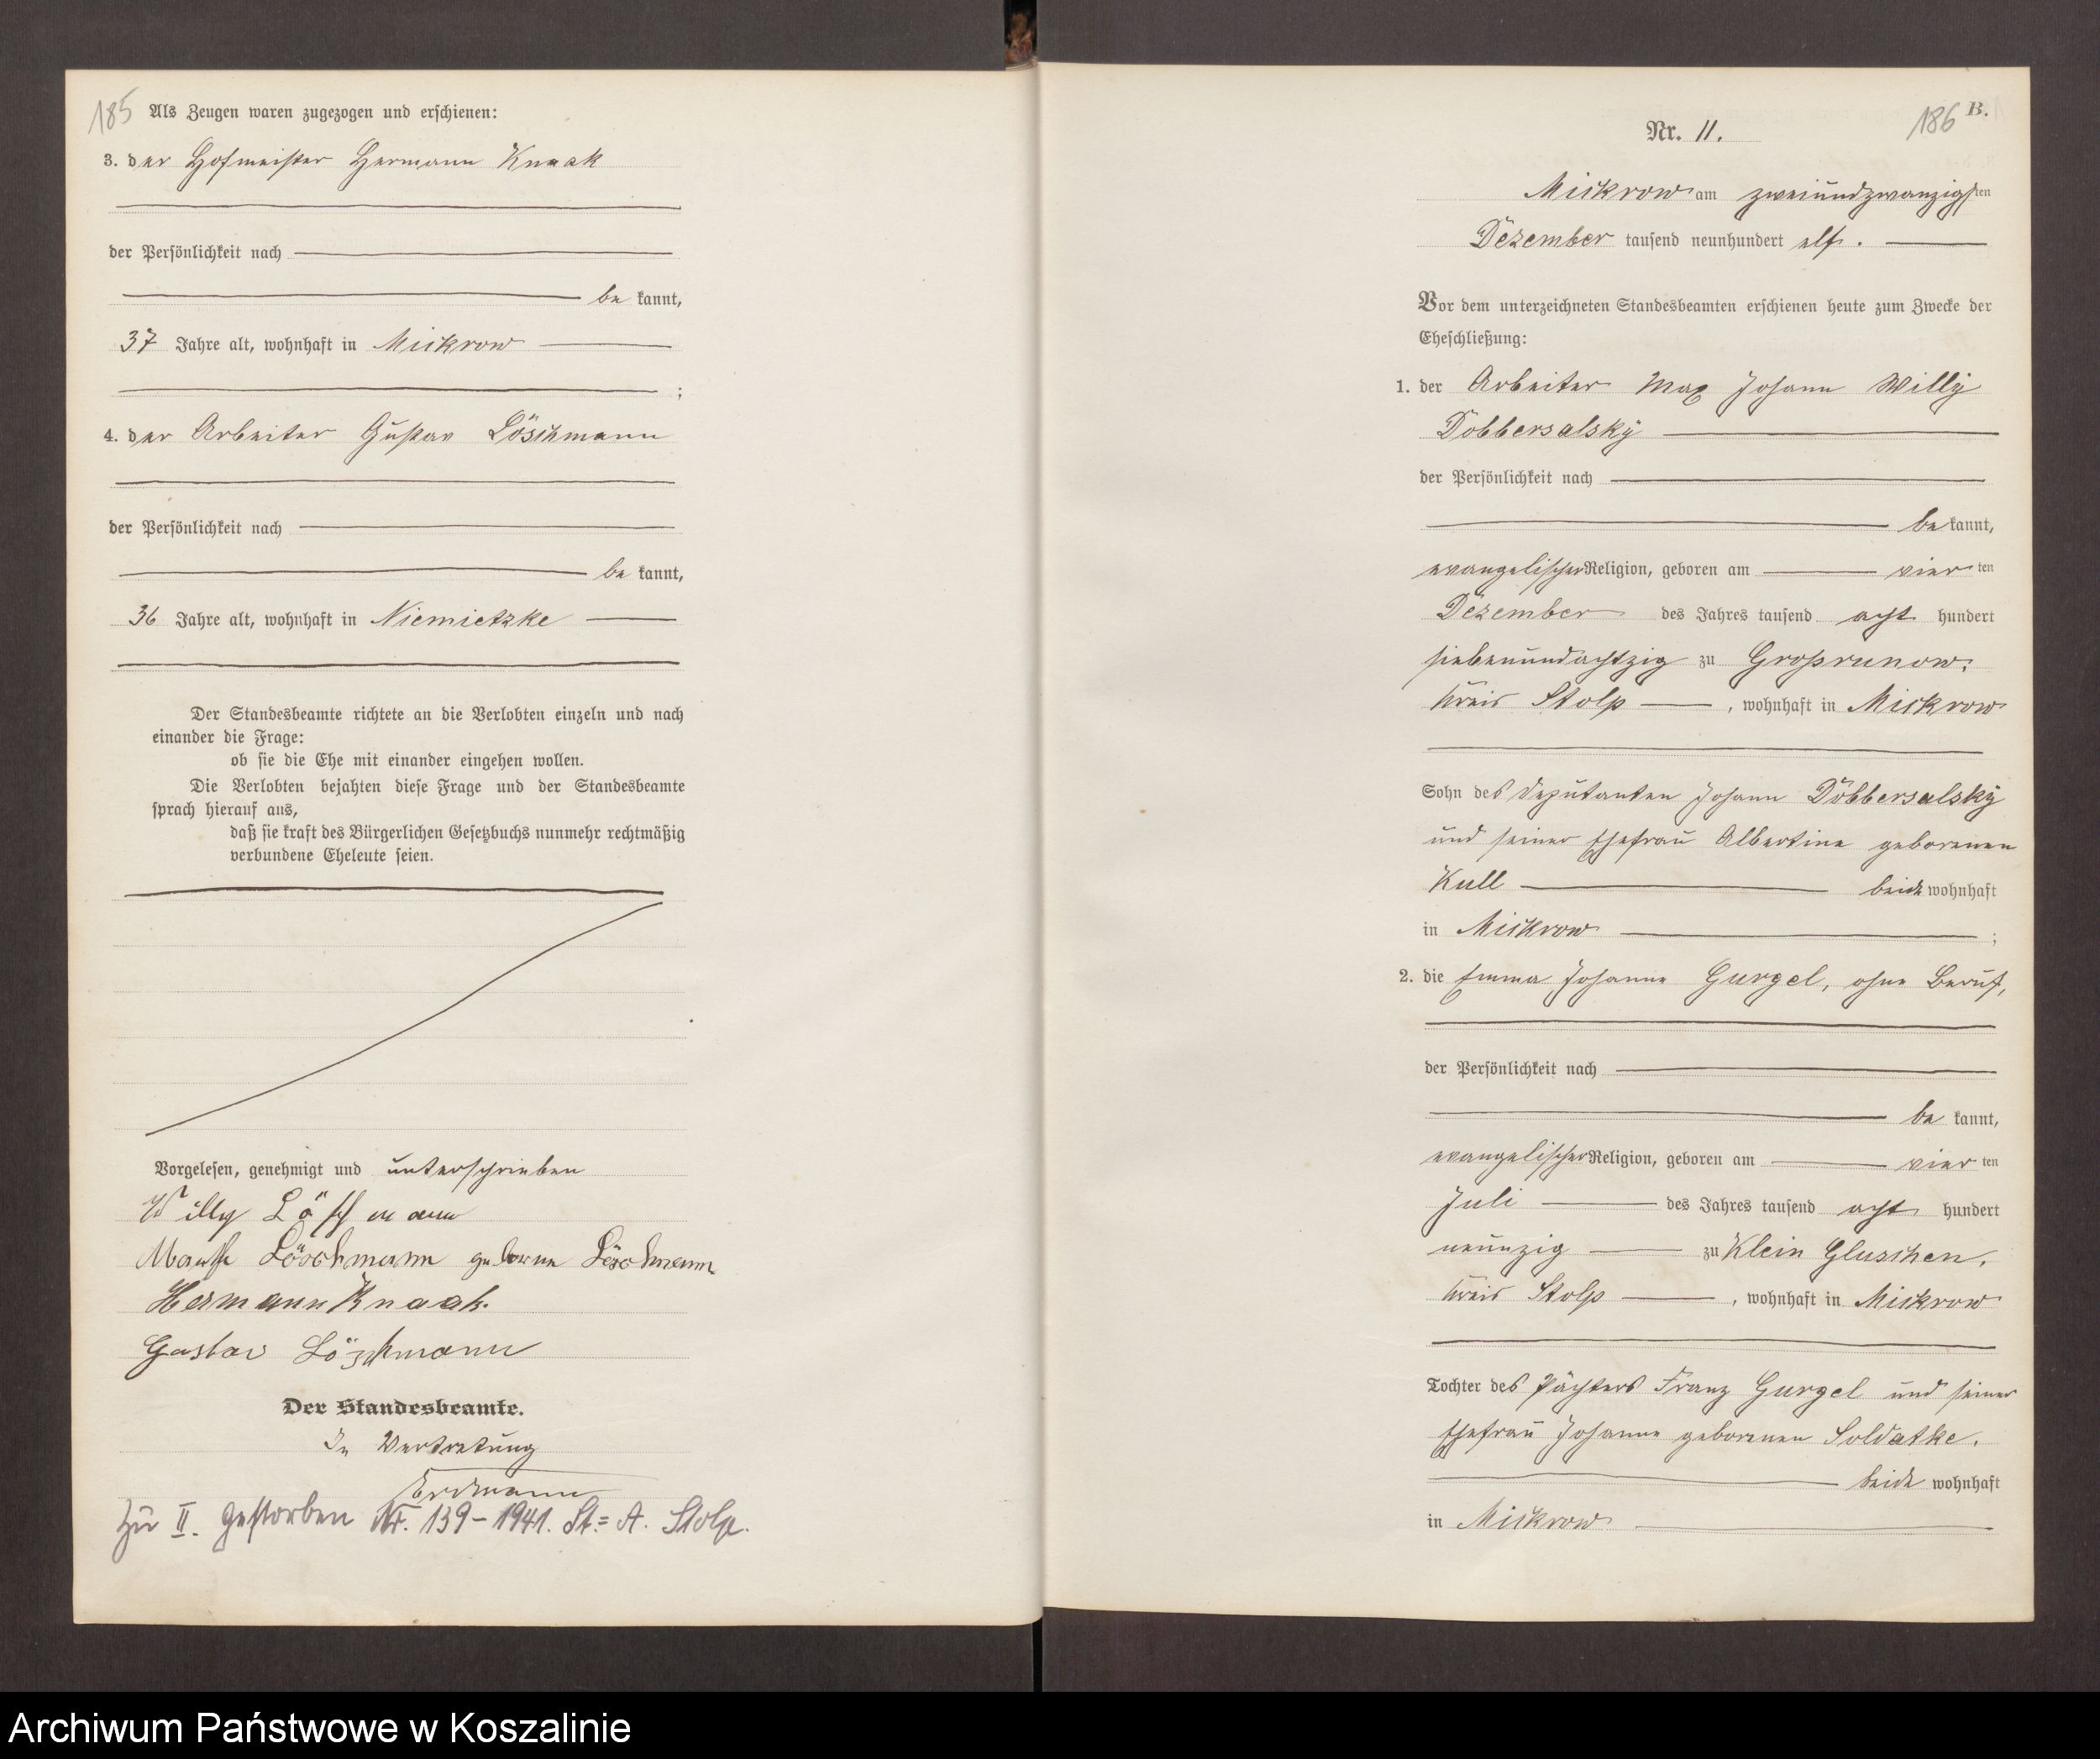 185
Als Zeugen waren zugezogen und erschienen:
3. der Hofmeister Hermann Knaak
der Persönlichkeit nach
be kannt,
37 Jahre alt, wohnhaft in Mickrow
;
4. der Arbeiter Gustav Löschmann
der Persönlichkeit nach
be kannt,
36 Jahre alt, wohnhaft in Niemietzke
Der Standesbeamte richtete an die Verlobten einzeln und nach
einander die Frage:
ob sie die Ehe mit einander eingehen wollen.
Die Verlobten bejahten diese Frage und der Standesbeamte
sprach hierauf aus,
daß sie kraft des Bürgerlichen Gesetzbuchs nunmehr rechtmäßig
verbundene Eheleute seien.
Vorgelesen, genehmigt und unterschrieben
Willy Löschmann
Löschmann geborene Löschmann
Hermann Knaak.
Gustav Löschmann
Der Standesbeamte.
In Vertretung
Erdmann
Zu II. Gestorben Nr. 139-1941. St.=A. Stolp.
186
B.
Nr. 11.
Mickrow am zweiundzwanzigsten
Dezember tausend neunhundert elf.
Vor dem unterzeichneten Standesbeamten erschienen heute zum Zwecke der
Eheschließung:
1. der Arbeiter Max Johann Willy
Dobbersalsky
der Persönlichkeit nach
be kannt,
evangelischer Religion, geboren am vier ten
Dezember des Jahres tausend acht hundert
siebenundachtzig zu Großrunow,
Kreis Stolp, wohnhaft in Mickrow
Sohn des Deputanten Johann Dobbersalsky
und seiner Ehefrau Albertine geborenen
Kull beide wohnhaft
in Mickrow ;
2. die Emma Johanne Gurgel, ohne Beruf,
der Persönlichkeit nach
be kannt,
evangelischer Religion, geboren am vier ten
Juli des Jahres tausend acht hundert
neunzig zu Klein Gluschen,
Kreis Stolp, wohnhaft in Mickrow
Tochter des Pächters Franz Gurgel und seiner
Ehefrau Johanne geborenen Soldatke,
beide wohnhaft
in Mickrow
Archiwum Państwowe w Koszalinie